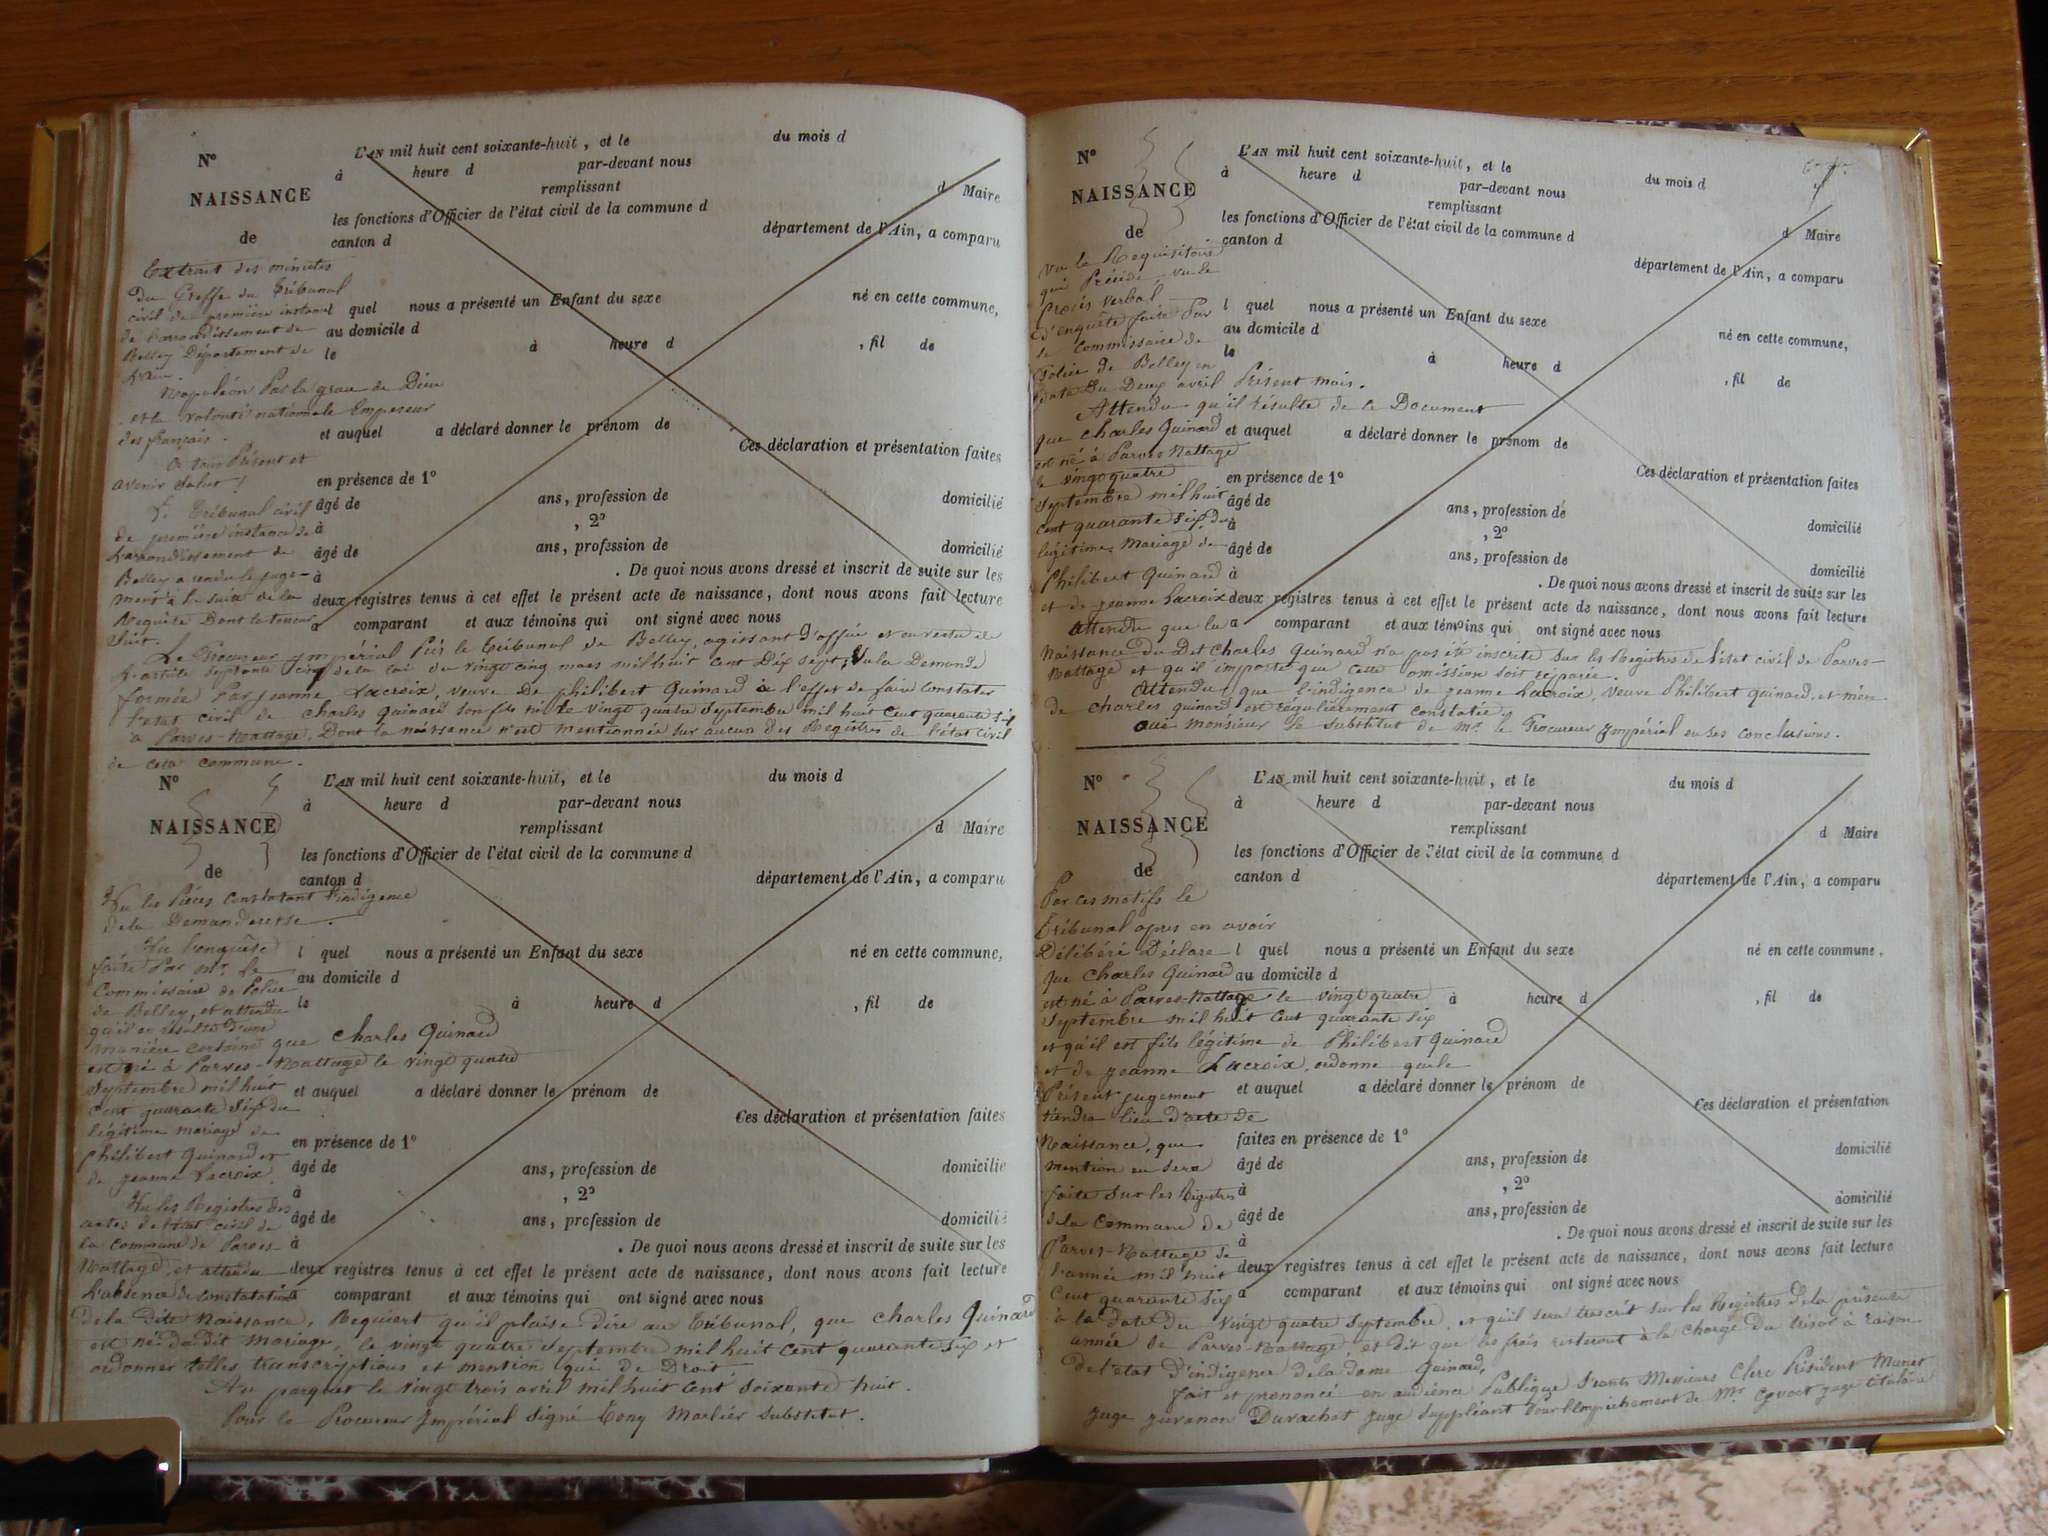 N° L'AN mil huit cent soixante-huit, et le du mois d
à heure d par-devant nous
NAISSANCE remplissant d Maire
les fonctions d'Officier de l'état civil de la commune d
de canton d département de l'Ain, a comparu
Extrait des minutes
Du Greffe du Tribunal
civil de première instance l quel nous a présenté un Enfant du sexe né en cette commune,
de l'arrondissement de au domicile d
Belley Département de le à heure d , fil de
L'ain.
Napoléon Par la grace de Dieu
et la volonté nationale Empereur
des français. et auquel a déclaré donner le prénom de
Ces déclaration et présentation faites
A tous Présent et
avenir Salut! en présence de 1°
Le Tribunal civil âgé de ans, profession de domicilié
de première instance de à , 2°
L'arrondissement de âgé de ans, profession de domicilié
Belley a rendu le juge- à . De quoi nous avons dressé et inscrit de suite sur les
ment à la suite de la deux registres tenus à cet effet le présent acte de naissance, dont nous avons fait lecture
Requête Dont la teneur a comparant et aux témoins qui ont signé avec nous
Suit.
Le Procureur impérial Près le Tribunal de Belley, agissant D'office et en vertu de
L'article septante cinq de la loi du vingt cinq mars mil huit Cent Dix sept, Vu la Demande
formée Par jeanne Lacroix, veuve De philibert Quinard à l'effet de faire Constater
l'état civil de Charles Quinard son fils né le vingt quatre Septembre mil huit Cent quarante six
à Parves-Nattage, Dont la naissance n'est mentionnée sur aucun des Registres de l'état Civil
de cette commune.
N° L'AN mil huit cent soixante-huit, et le du mois d
à heure d par-devant nous
NAISSANCE remplissant d Maire
les fonctions d'Officier de l'état civil de la commune d
de canton d département de l'Ain, a comparu
Vu les Pièces Constatant l'indigence
de la Demanderesse.
Vu l'enquête l quel nous a présenté un Enfant du sexe né en cette commune,
faite Par Mr. le au domicile d
Commissaire de Police
de Belley, et attendu le à heure d , fil de
qu'il en résulte d'une
manière certaine que Charles Quinard
est né à Parves-Nattage le vingt quatre
Septembre mil huit et auquel a déclaré donner le prénom de
Cent quarante Six du
Ces déclaration et présentation faites
légitime mariage de
Philibert Quinard et en présence de 1°
de jeanne Lacroix. âgé de ans, profession de domicilié
Vu les Registres des à , 2°
actes de l'état civil de âgé de ans, profession de domicilié
la commune de Parves- à . De quoi nous avons dressé et inscrit de suite sur les
Nattage, et attendu deux registres tenus à cet effet le présent acte de naissance, dont nous avons fait lecture
L'absence de constatation a comparant et aux témoins qui ont signé avec nous
de la dite Naissance, Requiert qu'il plaise Dire au Tribunal, que Charles Quinard
est né du dit mariage, le vingt quatre Septembre mil huit Cent quarante Six et
ordonner telles transcriptions et mention que de Droit.
Au parquet le vingt trois avril mil huit Cent Soixante huit.
Pour le Procureur Impérial Signé Tony Marlier Substitut.
N° L'AN mil huit cent soixante-huit, et le du mois d
à heure d par-devant nous
NAISSANCE remplissant d Maire
les fonctions d'Officier de l'état civil de la commune d
de canton d département de l'Ain, a comparu
Vu le Requisitoire
qui Précéde, vu le
procès verbal l quel nous a présenté un Enfant du sexe né en cette commune,
d'enquête faite Par
le Commissaire de au domicile d
Police de Belley en le à heure d , fil de
date du Deux avril Présent mois.
Attendu qu'il résulte de ce Document
que Charles Quinard et auquel a déclaré donner le prénom de
est né à Parves Nattage
Ces déclaration et présentation faites
le vingt quatre en présence de 1°
Septembre mil huit âgé de ans, profession de domicilié
cent quarante six, du à , 2°
légitime mariage de âgé de ans, profession de domicilié
Philibert Quinard à . De quoi nous avons dressé et inscrit de suite sur les
et de jeanne Lacroix deux registres tenus à cet effet le présent acte de naissance, dont nous avons fait lecture
Attendu que la a comparant et aux témoins qui ont signé avec nous
Naissance du Det Charles Quinard n'a pas été inscrite sur les Registres de l'état civil de Parves-
Nattage et qu'il importe que cette omission soit réparée.
Attendu que l'indigence de jeanne Lacroix, veuve Philibert Quinard, et mère
de Charles quinard est régulièrement constatée,
Ouï monsieur le substitut de Mr. le Procureur Impérial en ses conclusions.
N° L'AN mil huit cent soixante-huit, et le du mois d
à heure d par-devant nous
NAISSANCE remplissant d Maire
les fonctions d'Officier de l'état civil de la commune d
de canton d département de l'Ain, a comparu
Par ces motifs le
Tribunal apres en avoir
Délibéré Déclare l quel nous a présenté un Enfant du sexe né en cette commune,
que Charles Quinard au domicile d
est né à Parves-Nattage le vingt quatre à heure d , fil de
Septembre mil huit Cent quarante six
et qu'il est fils légitime de Philibert Quinard
et de jeanne Lacroix, ordonne que le
Présent jugement et auquel a déclaré donner le prénom de
Ces déclaration et présentation
tiendra lieu d'acte de
Naissance, que faites en présence de 1°
mention en sera âgé de ans, profession de domicilié
faite sur les Registres à , 2°
de la Commune de âgé de ans, profession de domicilié
Parves-Nattage de à . De quoi nous avons dressé et inscrit de suite sur les
l'année mil huit deux registres tenus à cet effet le présent acte de naissance, dont nous avons fait lecture
Cent quarante six a comparant et aux témoins qui ont signé avec nous
à la date Du vingt quatre Septembre, et qu'il sera trascrit sur les Registres de la présente
année de Parves-Nattage, et dit que les frais resteront à la charge du trésor à raison
de l'état D'indigence de la dame Quinard,
fait et prononcé en audience Publique Séants Messieurs Clerc Président Munet
Juge Juvanon Duvachat juge suppléant Pour l'empêchement de Mr. juge titulaire